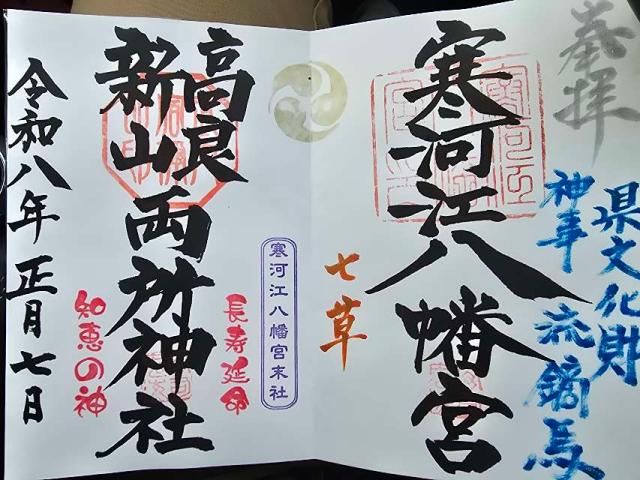 奉拝
県文化財
神事 流鏑馬
寒河江八幡宮
七草
寒河江八幡宮末社
長寿延命
高良
新山
両所神社
知恵の神
令和八年正月七日